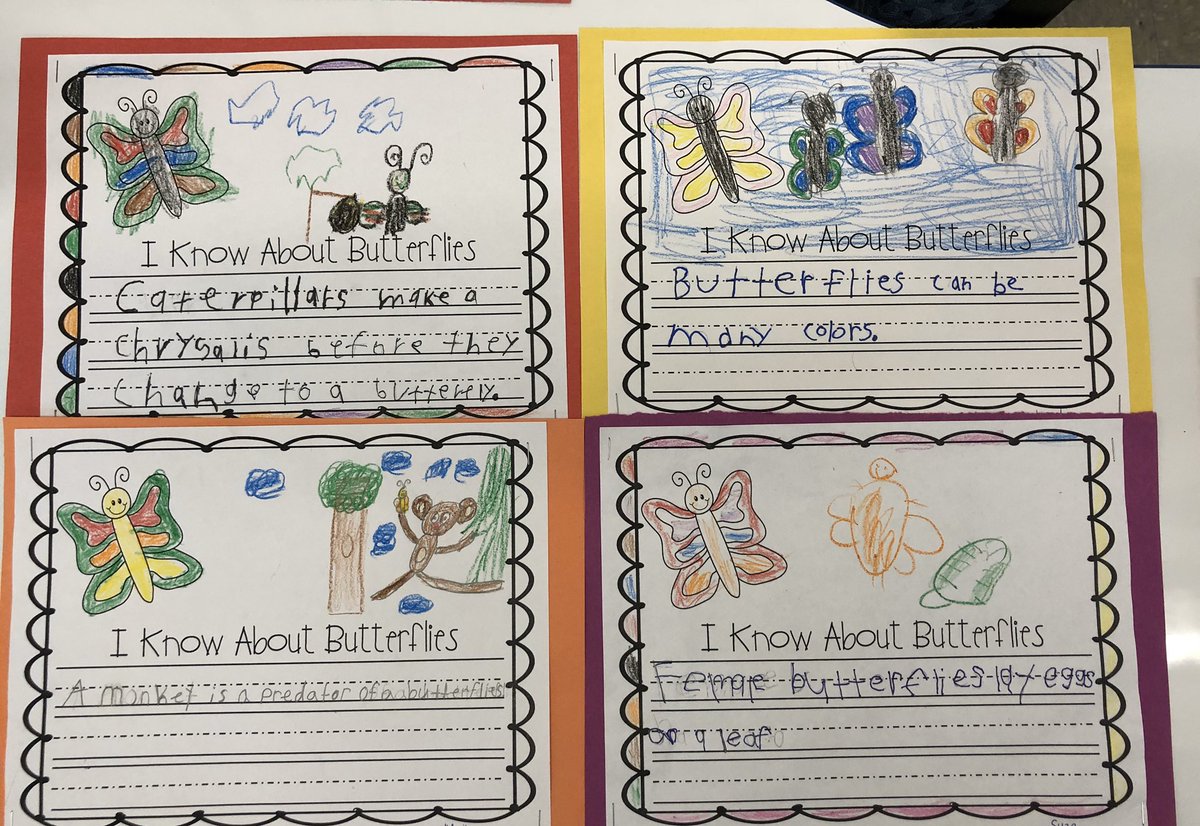 I Know About Butterflies
Caterpillars make a
chrysalis before they
change to a butterfly.
I Know About Butterflies
Butterflies can be
many colors.
I Know About Butterflies
A monket is a predator of a butterflies
I Know About Butterflies
Femae butterflies lay eggs
on a leaf